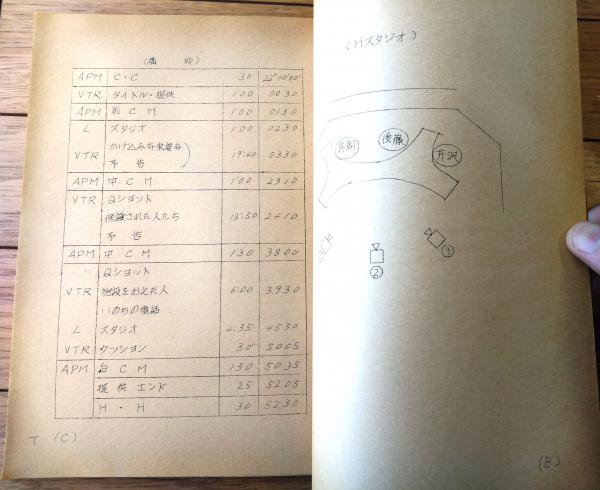 (構成)
APM C・C 30 22°00'00"
VTR タイトル・提供 1'00 0030
APM 前CM 1'00 0130
L スタジオ 1'00 0230
VTR 19'40 0330
予告
APM 中CM 1'00 2310
VTR Qショット
された人たち 13'50 2410
予告
APM 中CM 1'30 3800
Qショット
VTR 施設をおえた人 6'00 3930
いのちの電話
L スタジオ 4'35 4530
VTR クッション 30" 5005
APM 后CM 1'30 5035
提供エンド 25 5205
H・H 30 5230
T (C)
(Hスタジオ)
後藤
芹沢
②
③
(B)